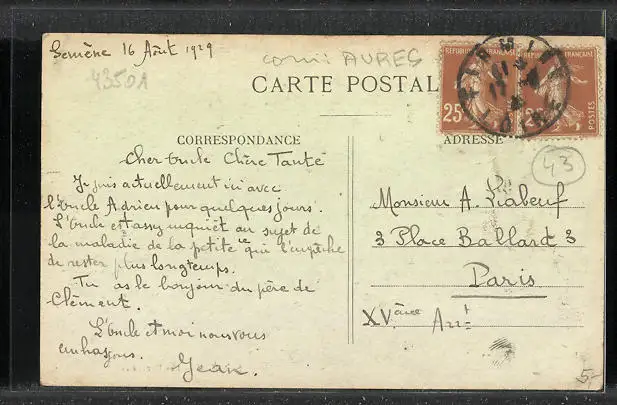 Semène 16 Août 1929
43501
AURES
CARTE POSTAL
CORRESPONDANCE
ADRESSE
REPUBLIQUE FRANÇAISE
25
POSTES
LOIRE
43
Cher Oncle Chère Tante
Je suis actuellement ici avec
l'oncle Adrien pour quelques jours.
L'Oncle est assez inquiet au sujet de
la maladie de la petite ce qui l'empêche
de rester plus longtemps.
Tu as le bonjour du père de
Clément.
L'Oncle et moi nous vous
embrassons.
Jean.
Monsieur A. Liabeuf
3 Place Ballard 3
Paris
XVème Arrt
5,-